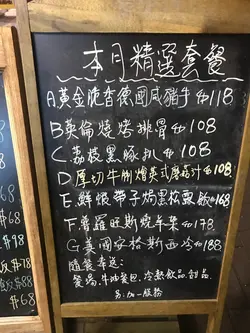 本月精選套餐
A.黃金脆香德國咸豬手 $118
B.英倫燒烤排骨 $108
C.荔枝黑豚扒 $108
D.厚切牛脷燴美式蘑菇汁 $108
E.鮮銀帶子焗黑松露飯 $168
F.普羅旺斯燒羊架 $178
G.美國安格斯西冷 $188
隨餐奉送:
餐湯、牛油餐包、冷熱飲品、甜品.
另加一服務
$68
$98
$88
$68